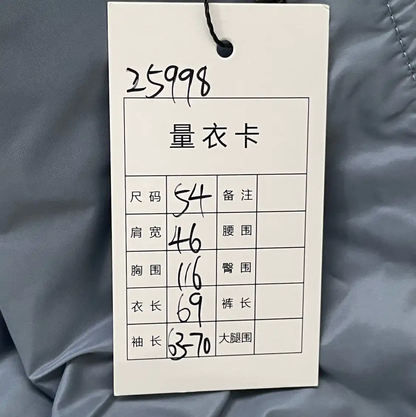 25998
量衣卡
尺码 54 备注
肩宽 46 腰围
胸围 116 臀围
衣长 69 裤长
袖长 63-70 大腿围